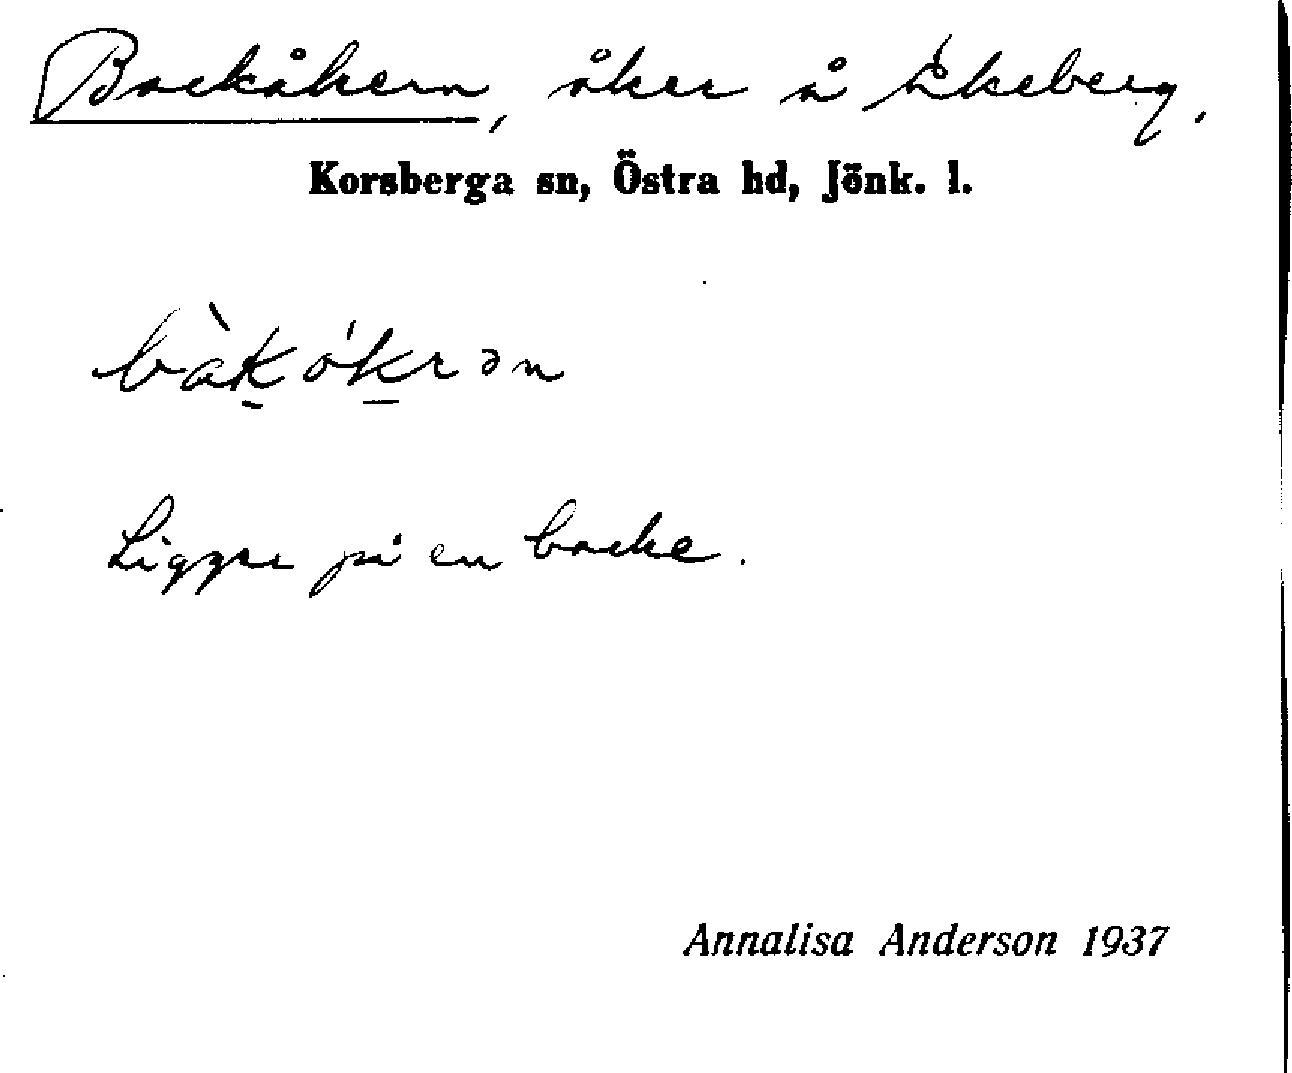 Backåkern, åker å Ekeberg.
Korsberga sn, Östra hd, Jönk. l.
bàkókrən
Ligger på en backe.
Annalisa Anderson 1937